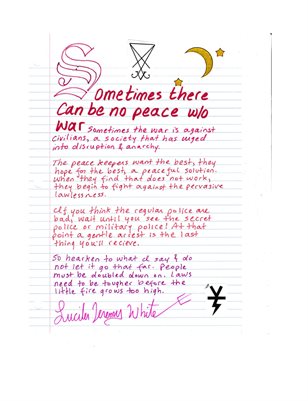 Sometimes there
Can be no peace w/o
war Sometimes the war is against
civilians, a society that has urged
into disruption & anarchy.
The peace keepers want the best, they
hope for the best, a peaceful solution.
When they find that does not work,
they begin to fight against the pervasive
lawlessness.
If you think the regular police are
bad, wait until you see the secret
police or military police! At that
point a gentle arrest is the last
thing you'll recieve.
So hearken to what I say & do
not let it go that far. People
must be doubled down on. Laws
need to be tougher before the
little fire grows too high.
Lucifer Jeremy White